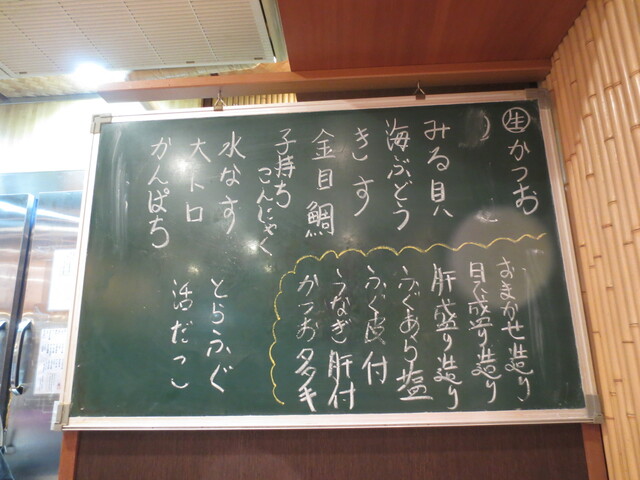 生かつお
みる貝
海ぶどう
きす
金目鯛
子持ち
こんにゃく
水なす
大トロ
かんぱち
おまかせ造り
貝盛り造り
肝盛り造り
ふぐあら塩
ふぐ皮付
うなぎ肝付
かつお
とらふぐ
活だこ